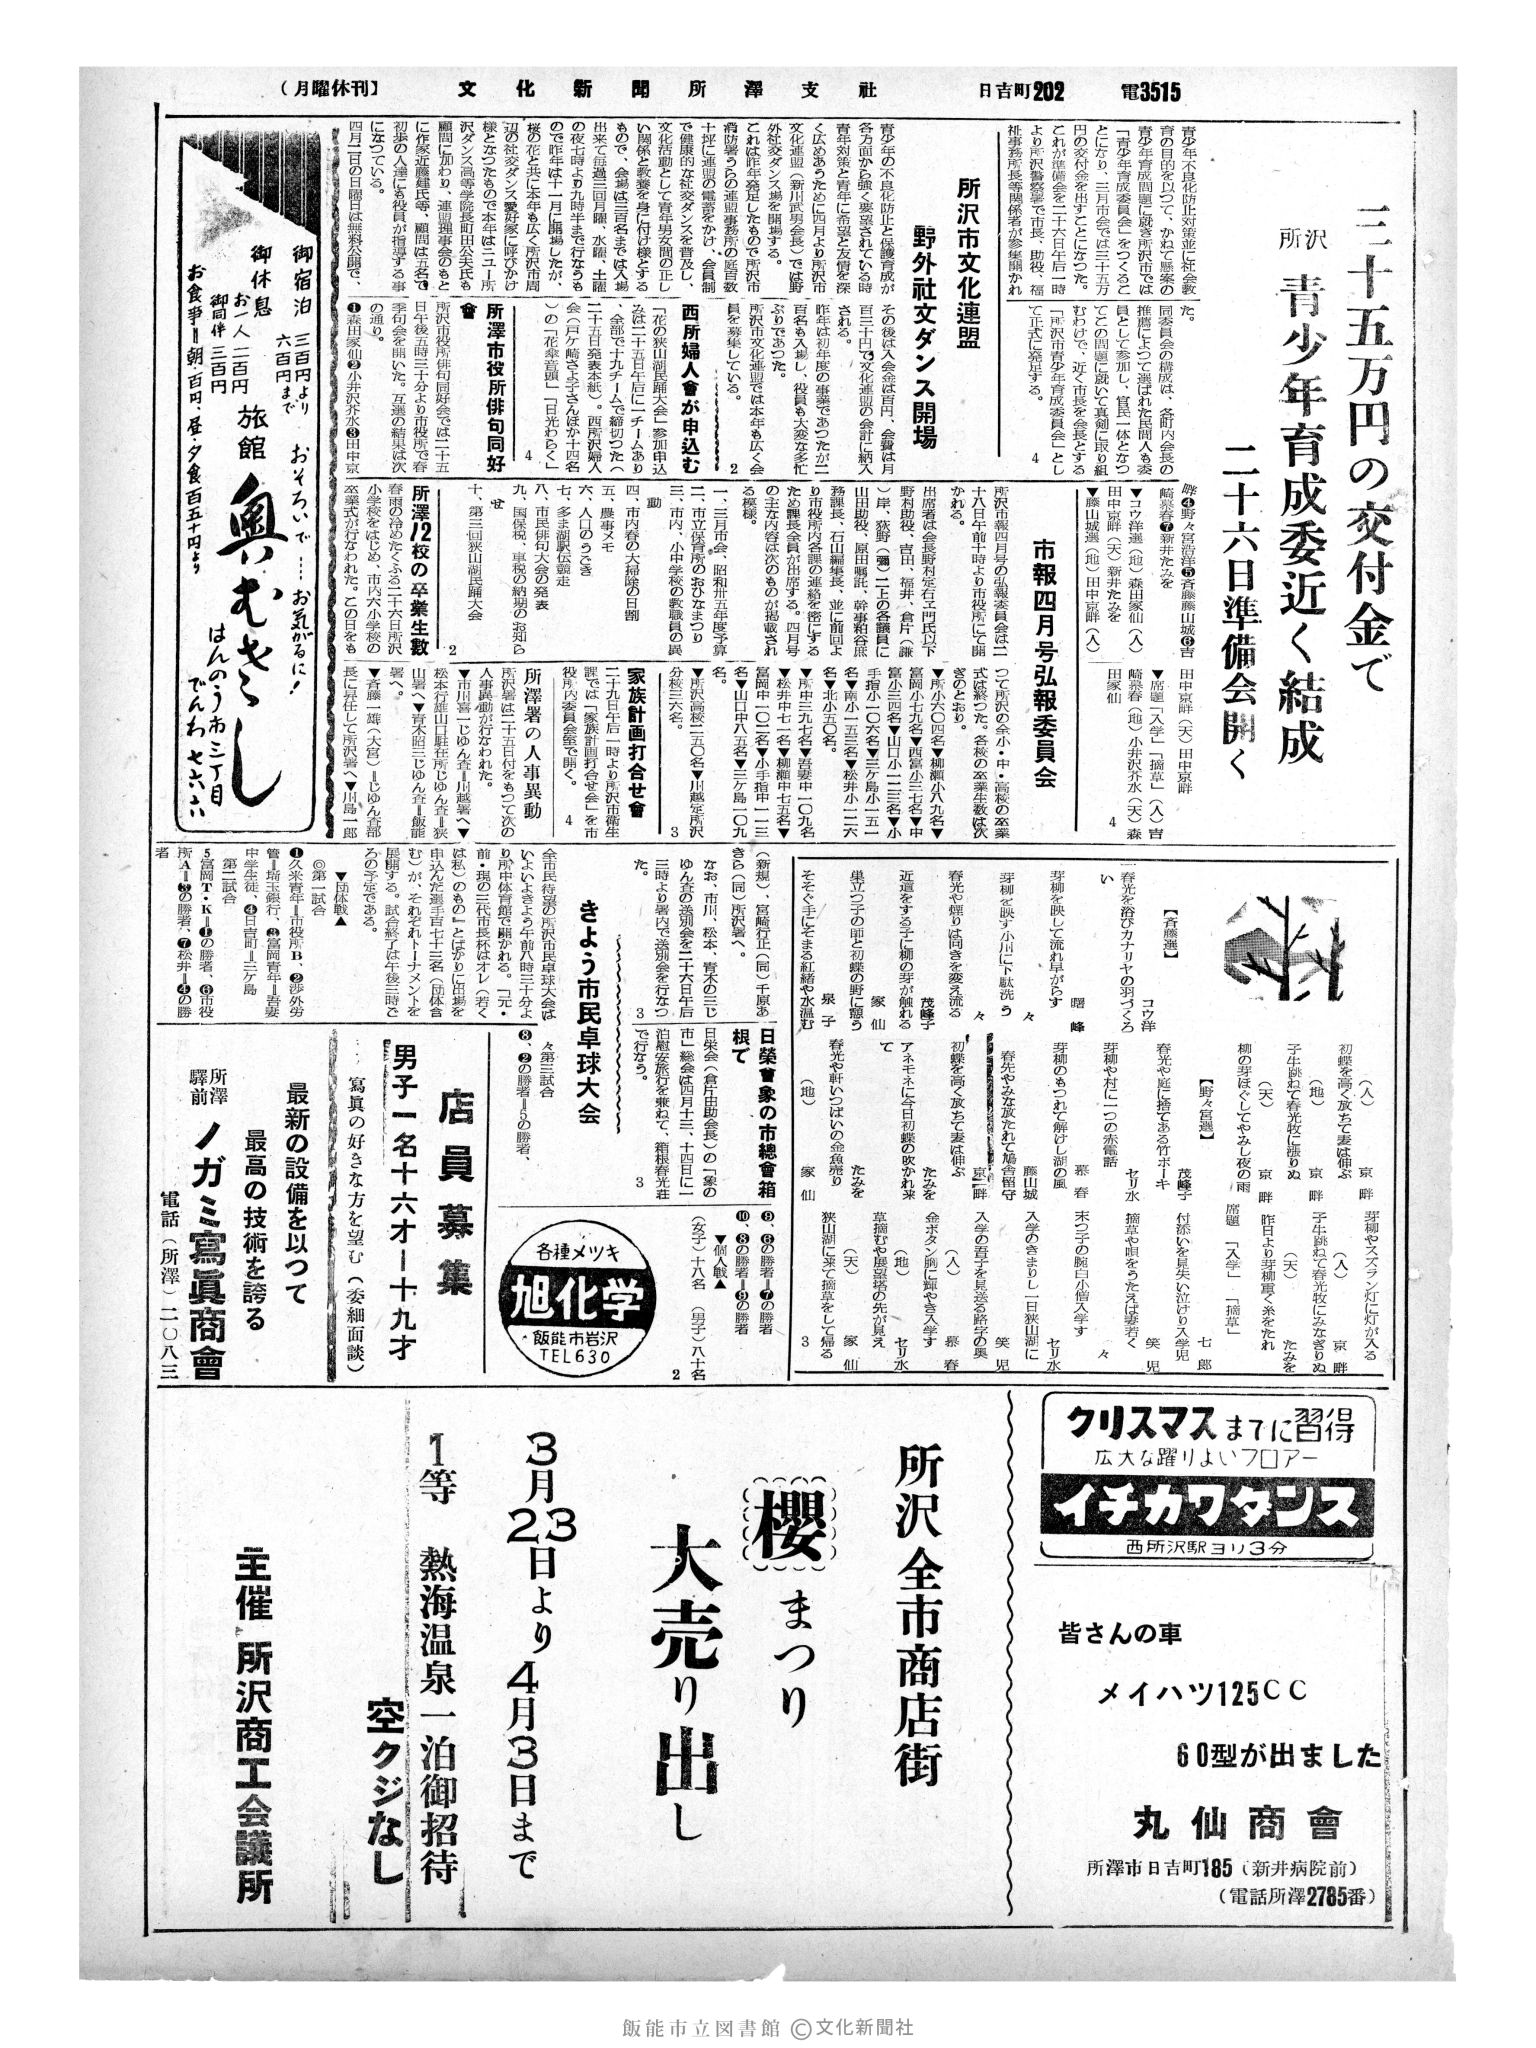 (月曜休刊)　文化新聞所澤支社　日吉町202　電3515
三十五万円の交付金で
所沢 青少年育成委近く結成
二十六日準備会開く
青少年不良化防止対策並に社会教
育の目的を以つて、かねて懸案の
青少年育成問題に就き所沢市では
「青少年育成委員会」をつくるこ
とになり、三月市会では三十五万
円の交付金を出すことになつた。
これが準備会を二十六日午后一時
より所沢警察署で市長、助役、福
祉事務所長等関係者が参集開かれ
た。
同委員会の構成は、各町内会長の
推薦によつて選ばれた民間人も委
員として参加し、官民一体となつ
てこの問題に就いて真剣に取り組
むわけで、近く市長を会長とする
「所沢市青少年育成委員会」とし
て正式に発足する。 4
所沢市文化連盟
野外社交ダンス開場
青少年の不良化防止と保護育成が
各方面から強く要望されている時
青年対策と青年に希望と友情を深
く広めあうために四月より所沢市
文化連盟(新川武男会長)では野
外社交ダンス場を開場する。
これは昨年発足したもので所沢市
消防署うらの連盟事務所の庭百数
十坪に連盟の電蓄をかけ、会員制
で健康的な社交ダンスを普及し、
文化活動として青年男女間の正し
い関係と教養を身に付け様とする
もので、会場は三百名までは入場
出来て毎週三回月曜、水曜、土曜
の夜七時より九時半まで行なうも
ので昨年は十一月に開場したが、
桜の花と共に本年も広く所沢市周
辺の社交ダンス愛好家に呼びかけ
様となつたもので本年はニユー所
沢ダンス高等学院長町田公夫氏も
顧問に加わり、連盟理事会のもと
に作家近藤健氏等、顧問は五名で
初歩の人達にも役員が指導する事
になつている。
四月二日の日曜日は無料公開で、
その後は入会金は百円、会費は月
百三十円で文化連盟の会計に納入
される。
昨年は初年度の事業であつたが二
百名も入場し、役員も大変な多忙
ぶりであつた。
所沢市文化連盟では本年も広く会
員を募集している。 2
西所婦人會が申込む
「花の狭山湖民踊大会」参加申込
みは二十五日午后に一チームあり
、全部で十九チームで締切つた(
二十五日発表本紙)。西所沢婦人
会(戸ケ崎さよ子さんほか十四名
)の「花傘音頭」「日光わらく」
4
所澤市役所俳句同好
會
所沢市役所俳句同好会では二十五
日午後五時三十分より市役所で春
季句会を開いた。互選の結果は次
の通り。
❶森田家仙❷小井沢芥水❸田中京
畔❹野々宮浩洋❺斉藤藤山城❻吉
崎慕春❼新井たみを
▼コウ洋選(地)森田家仙(人)
田中京畔(天)新井たみを
▼藤山城選(地)田中京畔(人)
田中京畔(天)田中京畔
▼席題「入学」「摘草」(人)吉
崎慕春(地)小井沢芥水(天)森
田家仙 4
市報四月号弘報委員会
所沢市報四月号の弘報委員会は二
十八日午前十時より市役所にて開
かれる。
出席者は会長野村定右ヱ門氏以下
野村助役、吉田、福井、倉片(謙
)岸、荻野(彌)二上の各議員に
山田助役、原田嘱託、幹事粕谷庶
務課長、石山編集長、並に前回よ
り市役所内各課の連絡を密にする
ため課長全員が出席する。四月号
の主な内容は次のものが掲載され
る模様。
一、三月市会、昭和卅五年度予算
二、市立保育所のおひなまつり
三、市内、小中学校の教職員の異
動
四、市内春の大掃除の日割
五、農事メモ
六、人口のうごき
七、多ま湖駅伝競走
八、市民俳句大会の発表
九、国保税、車税の納期のお知ら
せ
十、第三回狭山湖民踊大会 2
所澤12校の卒業生數
春雨の冷めたくふる二十六日所沢
小学校をはじめ、市内六小学校の
卒業式が行なわれた。この日をも
つて所沢の全小・中・高校の卒業
式は終つた。各校の卒業生数は次
ぎのとおり。
▼所小六〇四名▼柳瀬小八九名▼
富岡小七九名▼西富小三七名▼中
富小三四名▼山口小一二三名▼小
手指小一〇六名▼三ケ島小一五一
名▼南小一五三名▼松井小一二六
名▼北小五〇名。
▼所中三九七名▼吾妻中一〇九名
▼松井中七一名▼柳瀬中七五名▼
富岡中一〇二名▼小手指中一一三
名▼山口中八五名▼三ケ島一〇九
名。
▼所沢高校二五〇名▼川越定所沢
分校三六名。 3
家族計画打合せ會
二十九日午后一時より所沢市衛生
課では「家族計画打合せ会」を市
役所内委員会室で開く。 4
所澤署の人事異動
所沢署は二十五日付をもつて次の
人事異動が行なわれた。
▼市川喜一じゆん査＝川越署へ▼
松本行雄山口駐在所じゆん査＝狭
山署へ▼青木昭三じゆん査＝飯能
署へ。
▼斉藤一雄(大宮)＝じゆん査部
長に昇任して所沢署へ▼川島一郎
(新規)、宮崎行正(同)千原あ
きら(同)所沢署へ。
なお、市川、松本、青木の三じ
ゆん査の送別会を二十六日午后
三時より署内で送別会を行なつ
た。 3
きよう市民卓球大会
全市民待望の所沢市民卓球大会は
いよいよきよう午前八時三十分よ
り所中体育館で開かれる。「元・
前・現の三代市長杯はオレ(若く
は私)のもの」とばかりに出場を
申込んだ選手百七十三名(団体含
む)が、それぞれトーナメントを
展開する。試合終了は午後三時ご
ろの予定である。
▼団体戦▲
◎第一試合
❶久米青年＝市役所B、❷渉外労
管＝埼玉銀行、❸富岡青年＝吾妻
中学生徒、❹日吉町＝三ケ島
第二試合
5富岡T・K＝❶の勝者、❻市役
所A＝❸の勝者、❼松井＝❹の勝
者
々第三試合
❽、❷の勝者＝5の勝者、
❾、❻の勝者＝❼の勝者
❿、❽の勝者＝❾の勝者
▼個人戦▲
(女子)十八名　(男子)八十名
2
日榮會象の市總會箱
根で
日栄会(倉片由助会長)の「象の
市」総会は四月十三、十四日に一
泊慰安旅行を兼ねて、箱根春光荘
で行なう。 3
【斉藤選】
春光を浴びカナリヤの羽づくろ
い コウ洋
芽柳を映して流れ早がらす
曙峰
芽柳を映す小川に下駄洗う
々
春光や煙りは向きを変え流る
々
近道をする子に柳の芽が触れる
茂峰子
巣立つ子の師と初蝶の野に憩う
家仙
そそぐ手にそまる紅緒や水温む
泉子
(人)
初蝶を高く放ちて妻は伸ぶ
京畔
(地)
子牛跳ねて春光牧に漲りぬ
京畔
(天)
柳の芽ほぐしてやみし夜の雨
京畔
【野々宮選】
春光や庭に捨てある竹ボーキ
茂峰子
芽柳や村に一つの赤電話
セリ水
芽柳のもつれて解けし湖の風
慕春
春光やみな放たれて鳩舎留守
藤山城
初蝶を高く放ちて妻は伸ぶ
京畔
アネモネに今日初蝶の吹かれ来
て たみを
春光や軒いつぱいの金魚売り
たみを
(地) 家仙
芽柳やスズラン灯に灯が入る
(人) 京畔
子牛跳ねて春光牧にみなぎりぬ
(天) たみを
昨日より芽柳重く糸をたれ
席題「入学」「摘草」
付添いを見失い泣けり入学児
七郎
摘草や唄をうたえば妻若く
笑児
末つ子の腕白小僧入学す
々
入学のきまりし一日狭山湖に
セリ水
入学の吾子を見送る路字の奥
笑児
(人)
金ボタン胸に輝やき入学す
慕春
(地)
草摘むや展望塔の先が見え
セリ水
(天) 家仙
狭山湖に来て摘草をして帰る
3
御宿泊　三百円より
六百円まで
御休息　お一人 二百円
御同伴 三百円
お食事＝朝 百円、昼・夕食百五十円より
おそろいで……お気がるに!
旅館 奥むさし
はんのう市三丁目
でんわ 七六六
店員募集
男子一名十六才ー十九才
寫眞の好きな方を望む(委細面談)
最新の設備を以つて
最高の技術を誇る
所澤
驛前 ノガミ寫眞商會
電話(所澤)二〇八三
各種メツキ
旭化学
飯能市岩沢
TEL630
クリスマスまでに習得
広大な躍りよいフロアー
イチカワダンス
西所沢駅ヨリ3分
皆さんの車
メイハツ125CC
60型が出ました
丸仙商會
所澤市日吉町185(新井病院前)
(電話所澤2785番)
所沢全市商店街
櫻まつり
大売り出し
3月23日より4月3日まで
1等　熱海温泉一泊御招待
空クジなし
主催 所沢商工会議所
飯能市立図書館 ©文化新聞社